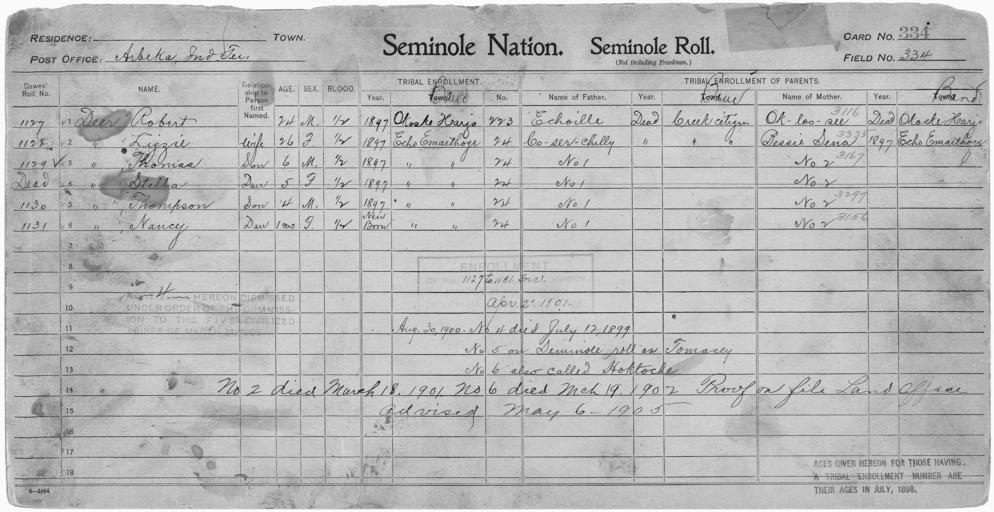 RESIDENCE: TOWN.
POST OFFICE: Arbeka, Ind Ter.
Seminole Nation. Seminole Roll.
(Not Including Freedmen.)
CARD NO. 334
FIELD NO. 334
Dawes' Roll No. NAME. Relationship to Person first Named. AGE. SEX. BLOOD. TRIBAL ENROLLMENT. TRIBAL ENROLLMENT OF PARENTS.
Year. Town. Band No. Name of Father. Year. Town. Band Name of Mother. Year. Town. Band
1127 1 Deer Robert 24 M. 1/2 1897 Okoske Harjo 223 Echoille Dead Creek citizen Ok-loo-see 3116 Dead Okoske Harjo
1128 2 " Lizzie Wife 26 F. 1/2 1897 Echo Emarthoge 24 Co-ser-chilly " " " Bessie Sena 3335 1897 Echo Emarthoge
1129 ✓ 3 " Thomas Son 6 M. 1/2 1897 " " 24 No 1 No 2 3167
Dead 4 " Stella Dau 5 F 1/2 1897 " " 24 No 1 No 2
1130 5 " " Thompson Son 4 M. 1/2 1897 " " 24 No 1 No 2 3297
1131 6 " " Nancy Dau 1 mo F. 1/2 New Born " " 24 No 1 No 2 3156
7
8
ENROLLMENT
9 1127 to 1131 Inc.
HEREON DISMISSED
10 UNDER ORDER OF THE COMMISSION TO THE FIVE CIVILIZED TRIBES OF MARCH 31, 1905. Apr 2 1901.
11 Aug. 30, 1900. No 4 died July 12, 1899
12 No 5 on Seminole roll as Tomasey
13 No 6 also called Hoktoche
14 No 2 died March 18, 1901. No 6 died Mch 19, 1902 Proof on file Land Office
15 advised May 6-1905
16
17
18
AGES GIVEN HEREON FOR THOSE HAVING
A TRIBAL ENROLLMENT NUMBER ARE
THEIR AGES IN JULY, 1898.